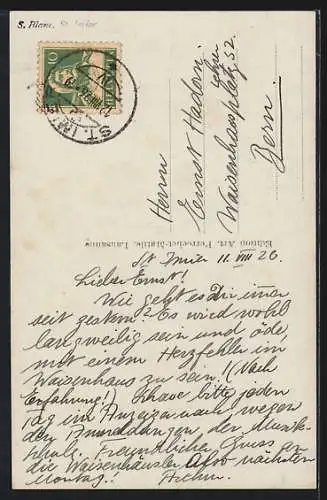 S. Blanc.
10
HELVETIA
ST. IMIER
Herrn
Ernst Hadorn.
Waisenhausplatz 32.
Bern.
Edition Art. Perrochet-Matile, Lausanne
St. Imier 11. VIII 26
Lieber Ernst!
Wie geht es Dir immer
seit gestern? Es wird wohl
langweilig sein und öde,
mit einem Herzfehler im
Waisenhaus zu sein! (Nach
Erfahrung!) Schaue bitte jeden
Tag im Anzeiger nach wegen
den Anmeldungen der Musik-
schule. Freundlicher Gruss an
die Waisenhäusler. Also nächsten
Montag!